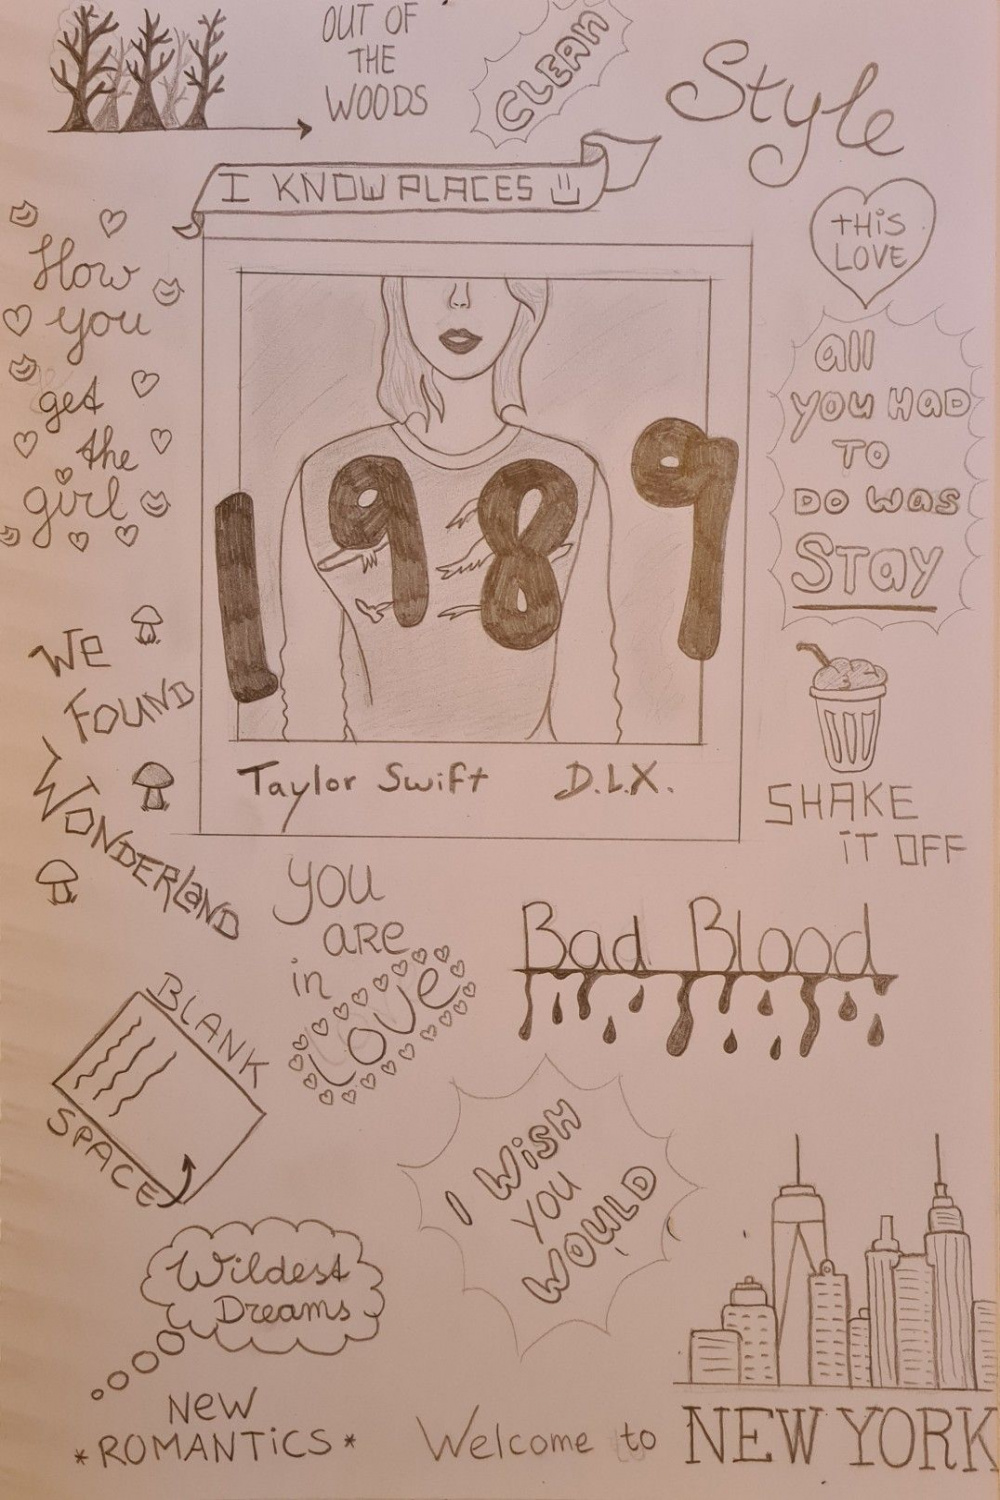 OUT OF
THE
WOODS
CLEAN
Style
I KNOW PLACES
THiS
LOVE
How
you
get
the
girl
all
YOU HAD
TO
DO was
STay
1989
We
FOUND
WONDERLaND
Taylor Swift D.L.X.
SHAKE
iT OFF
you
aRe
in
Love
Bad Blood
BLANK
SPACE
I WiSH
YOU
WOULD
Wildest
Dreams
NeW
*ROMANTiCS*
Welcome to NEW YORK